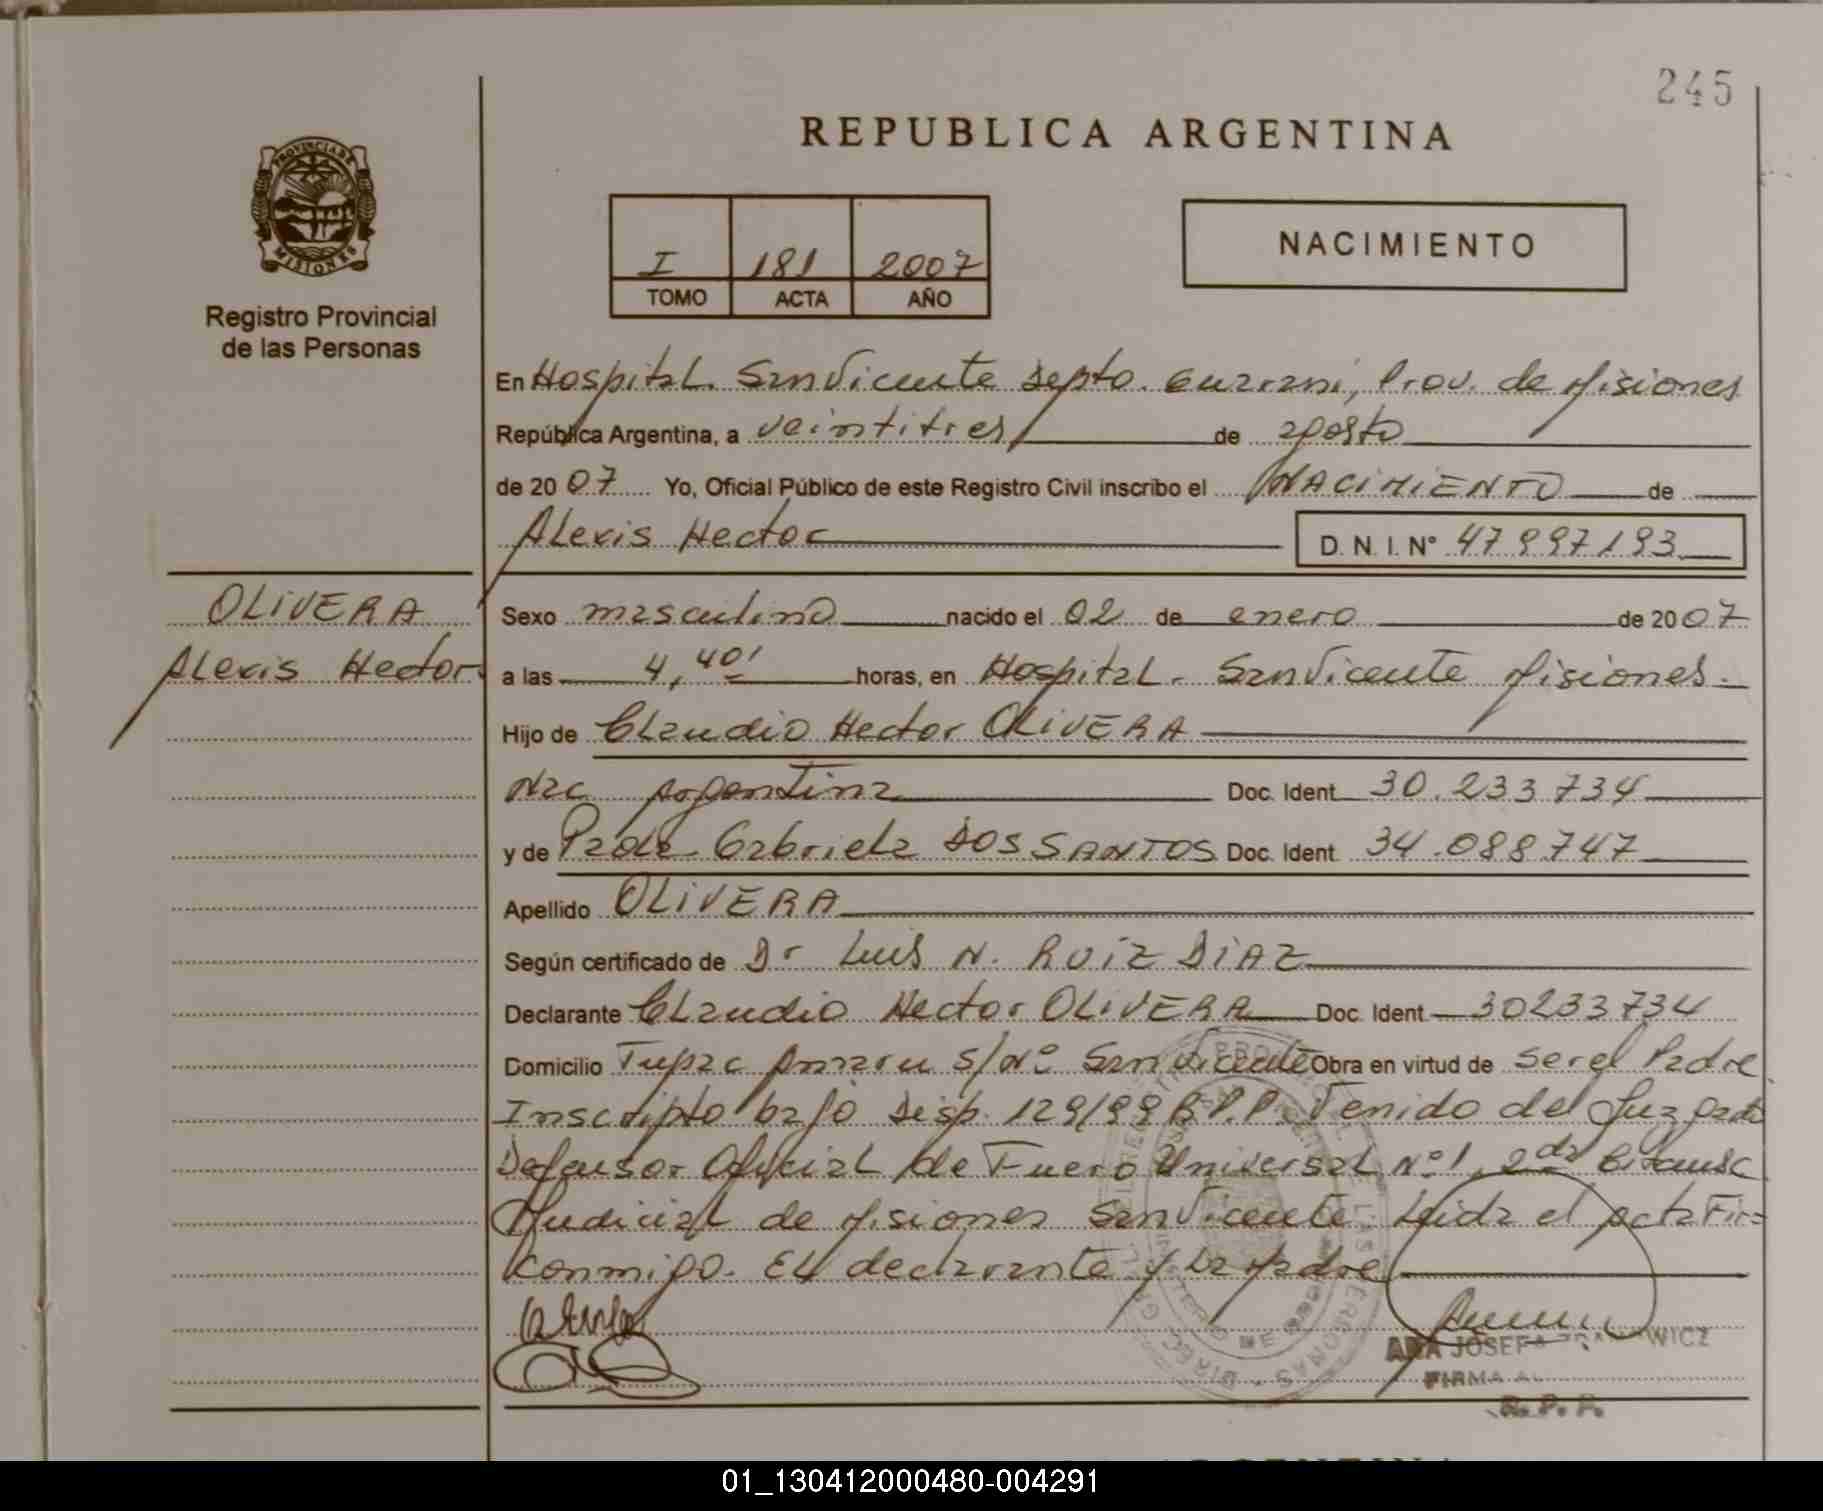 245
REPUBLICA ARGENTINA
PROVINCIA DE
MISIONES
Registro Provincial
de las Personas
I 181 2007
TOMO ACTA AÑO
NACIMIENTO
En Hospital. San Vicente Depto. Guarani, Prov. de Misiones
República Argentina, a veintitres de agosto
de 2007 Yo, Oficial Público de este Registro Civil inscribo el NACIMIENTO de
Alexis Hector D. N. I. Nº 47997193
OLIVERA
Alexis Hector
Sexo masculino nacido el 02 de enero de 2007
a las 4,40' horas, en Hospital. San Vicente Misiones.
Hijo de Claudio Hector OLIVERA
Nac Argentina Doc. Ident. 30.233.734
y de Gabriela DOS SANTOS Doc. Ident. 34.088.747
Apellido OLIVERA
Según certificado de Dr Luis N. RUIZ DIAZ
Declarante Claudio Hector OLIVERA Doc. Ident 30233734
Domicilio Tupac Amaru S/Nº San Vicente Obra en virtud de ser el Padre
Inscripto bajo Disp. 129/99 R.P.P. Venido del Juzgado
Defensor Oficial de Fuero Universal Nº 1, 2da
Judicial de Misiones San Vicente. Leida el acta Fir=
conmigo. El declarante y la Madre
ADA JOSEFA
FIRMA
R. P. P.
01_130412000480-004291